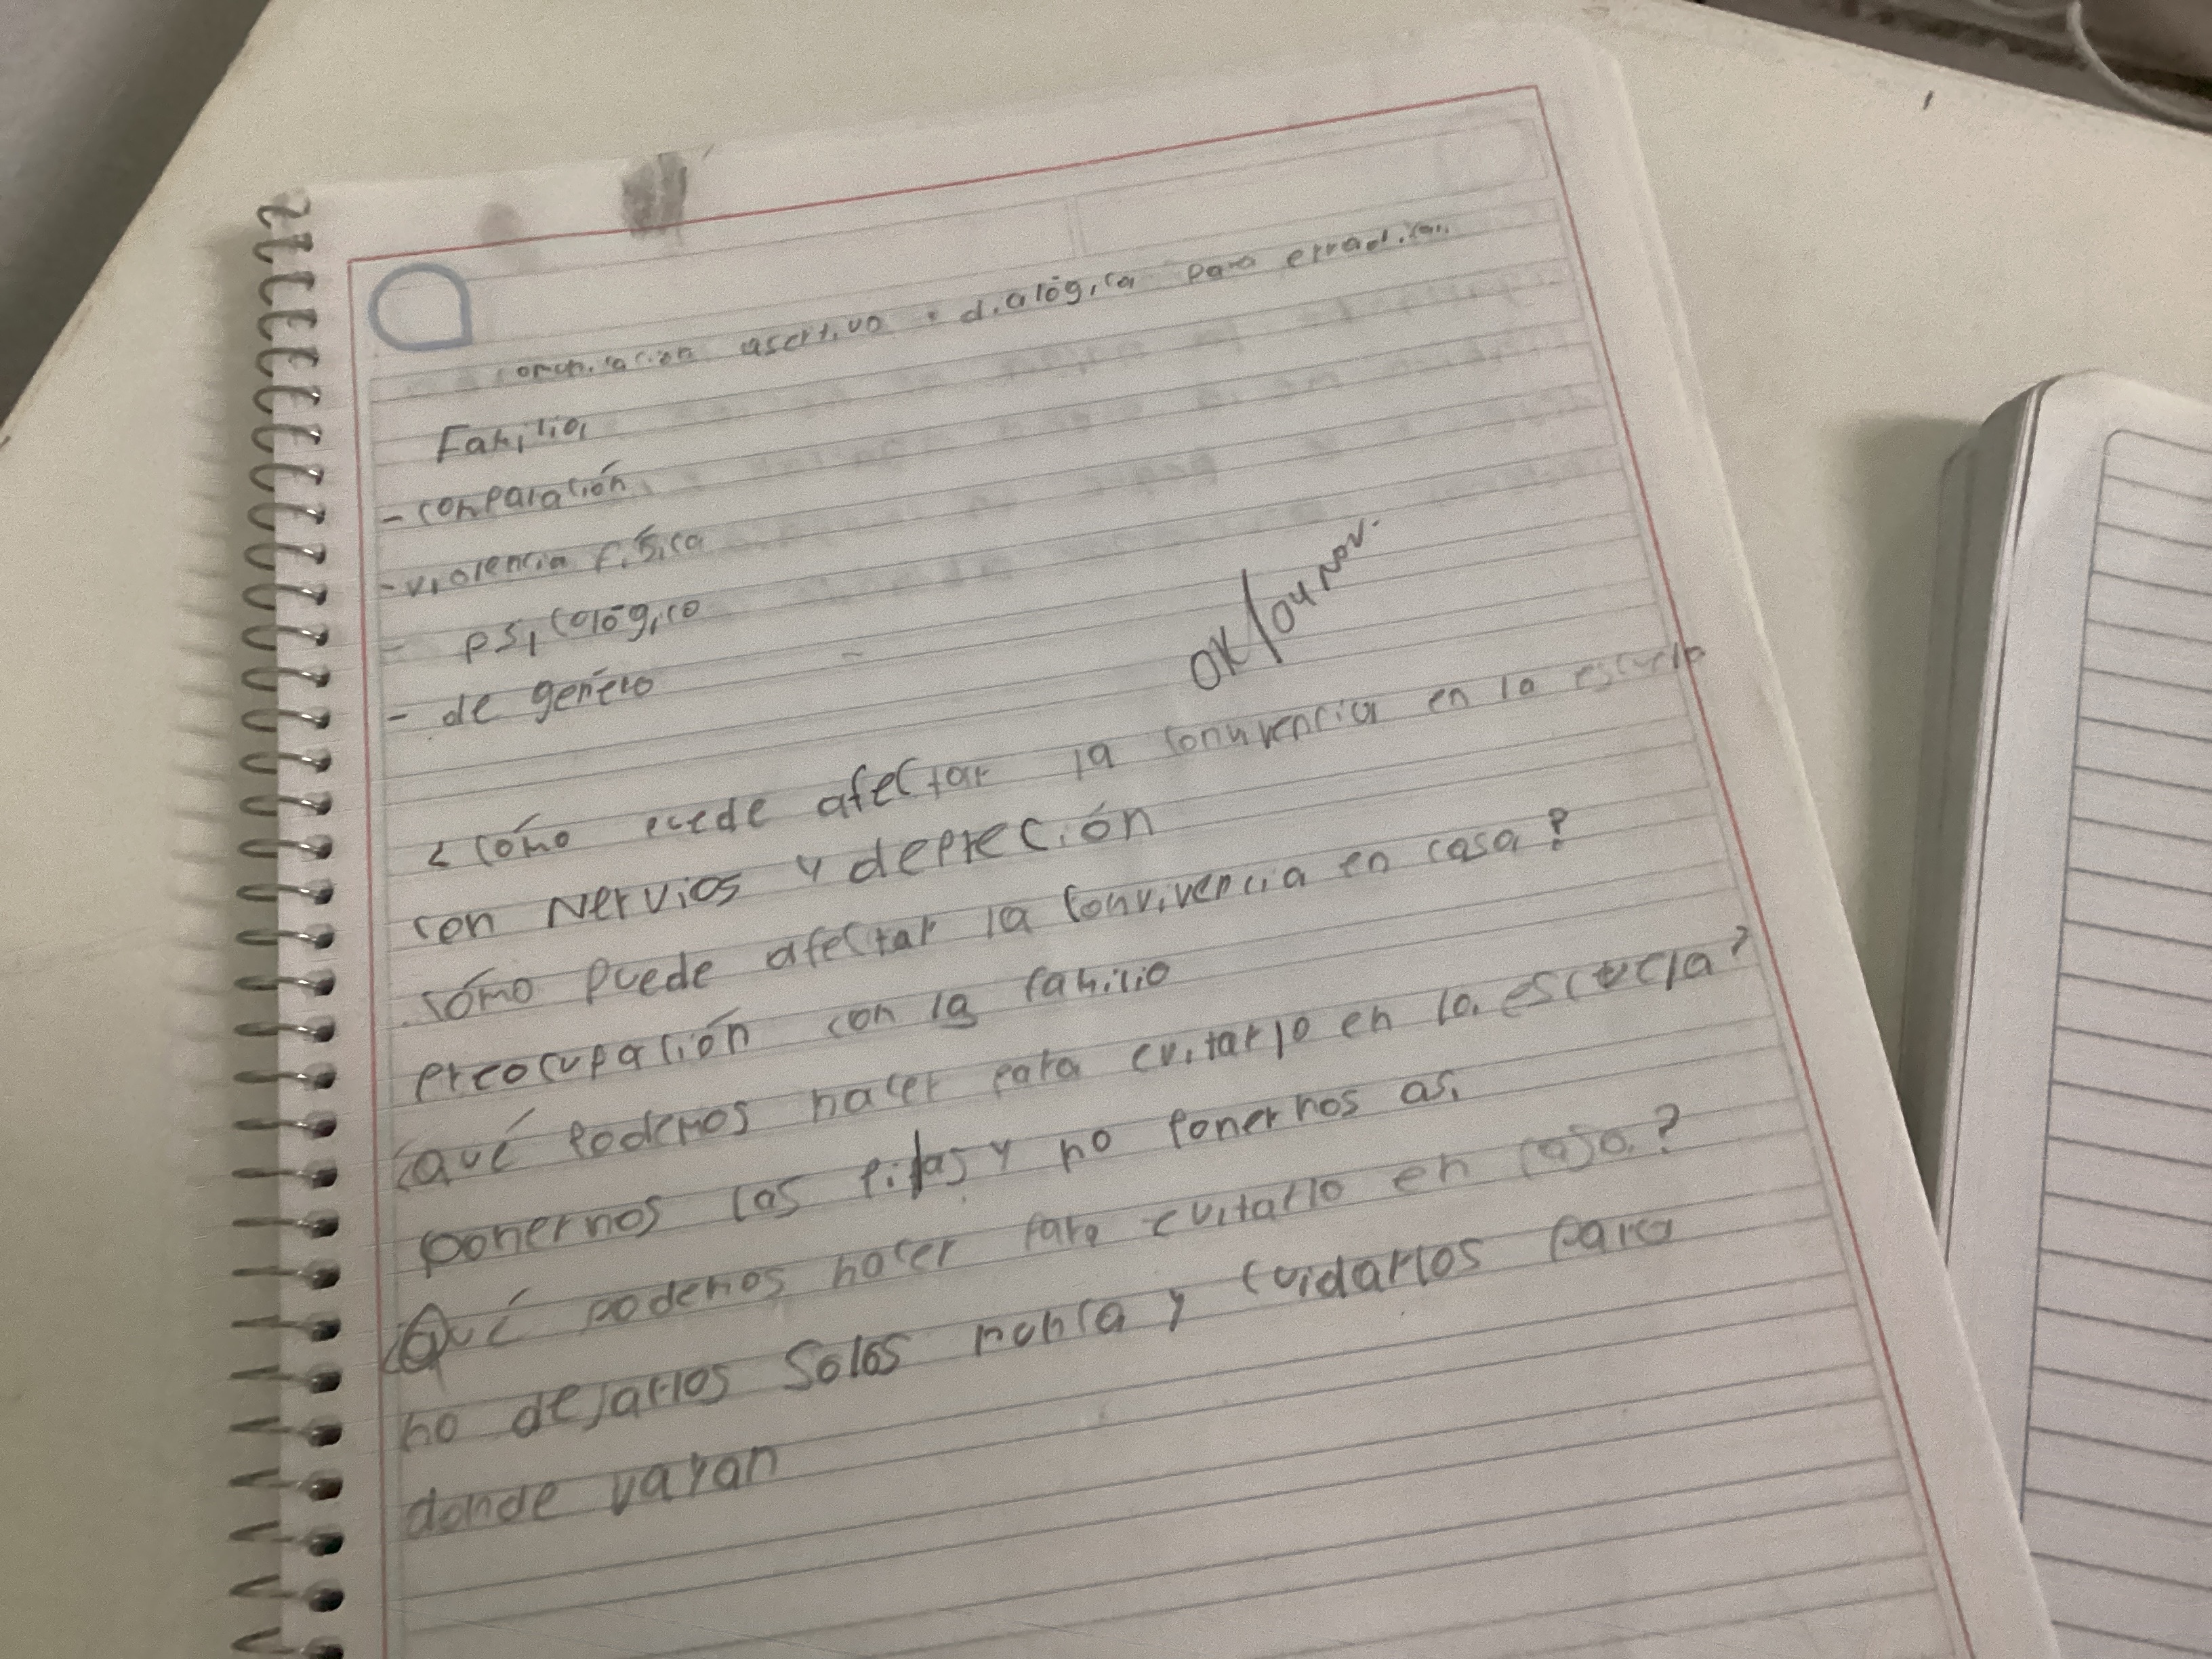 comunicación asertiva . dialógica para erradicar
Familia
- comparación
- violencia física
- psicológico
- de género
OK/04 Nov.
¿cómo puede afectar la convivencia en la escuela
con Nervios y depreción
cómo puede afectar la convivencia en casa?
preocupación con la familia
¿Qué podemos hacer para evitarlo en la escuela?
ponernos las pilas y no ponernos asi
¿Qué podemos hacer para evitarlo en casa?
no dejarlos Solos nunca y cuidarlos para
donde vayan